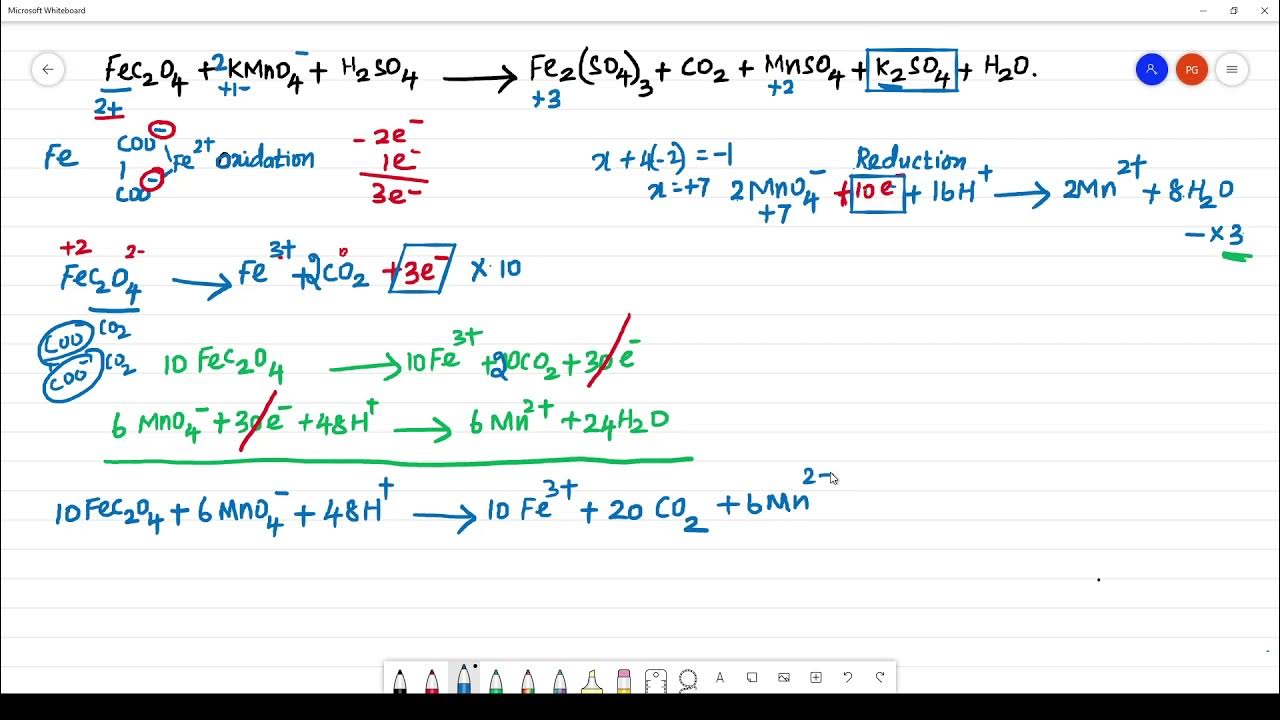 Microsoft Whiteboard
FeC₂O₄ + 2KMnO₄⁻ + H₂SO₄ ⟶ Fe₂(SO₄)₃ + CO₂ + MnSO₄ + K₂SO₄ + H₂O.
2+ +1- +3 +2
PG
Fe COO⁻ COO⁻ Fe²⁺ oxidation
- 2e⁻
1e⁻
3e⁻
x + 4(-2) = -1
x = +7
Reduction
2MnO₄⁻ + 10e⁻ + 16H⁺ ⟶ 2Mn²⁺ + 8H₂O
+7
- × 3
+2 2- 3+ 0
FeC₂O₄ ⟶ Fe³⁺ + 2CO₂ + 3e⁻ × 10
COO⁻ CO₂
COO⁻ CO₂
10 FeC₂O₄ ⟶ 10Fe³⁺ + 20CO₂ + 30e⁻
6 MnO₄⁻ + 30e⁻ + 48H⁺ ⟶ 6Mn²⁺ + 24H₂O
10FeC₂O₄ + 6MnO₄⁻ + 48H⁺ ⟶ 10Fe³⁺ + 20CO₂ + 6Mn²⁻
A